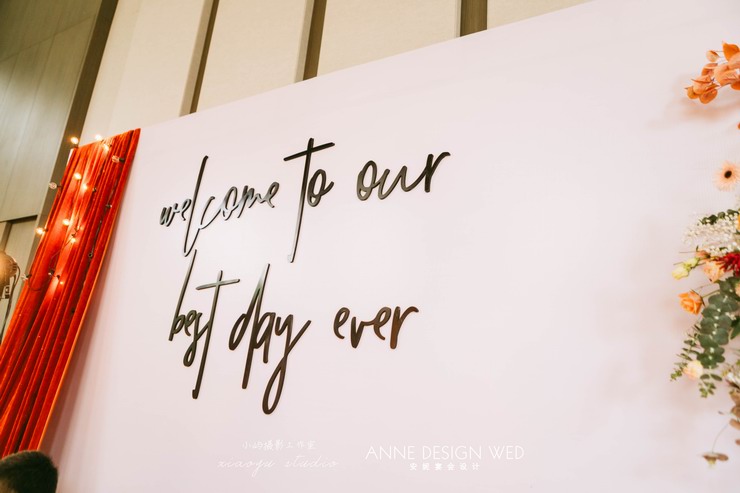 welcome to our
best day ever
小幼摄影工作室
xiaoyu studio
ANNE DESIGN WED
安妮宴会设计